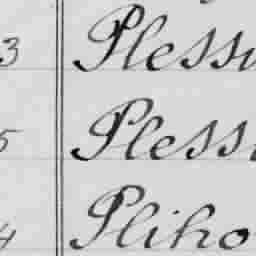 3 Plessi
5 Pless
4 Pliho